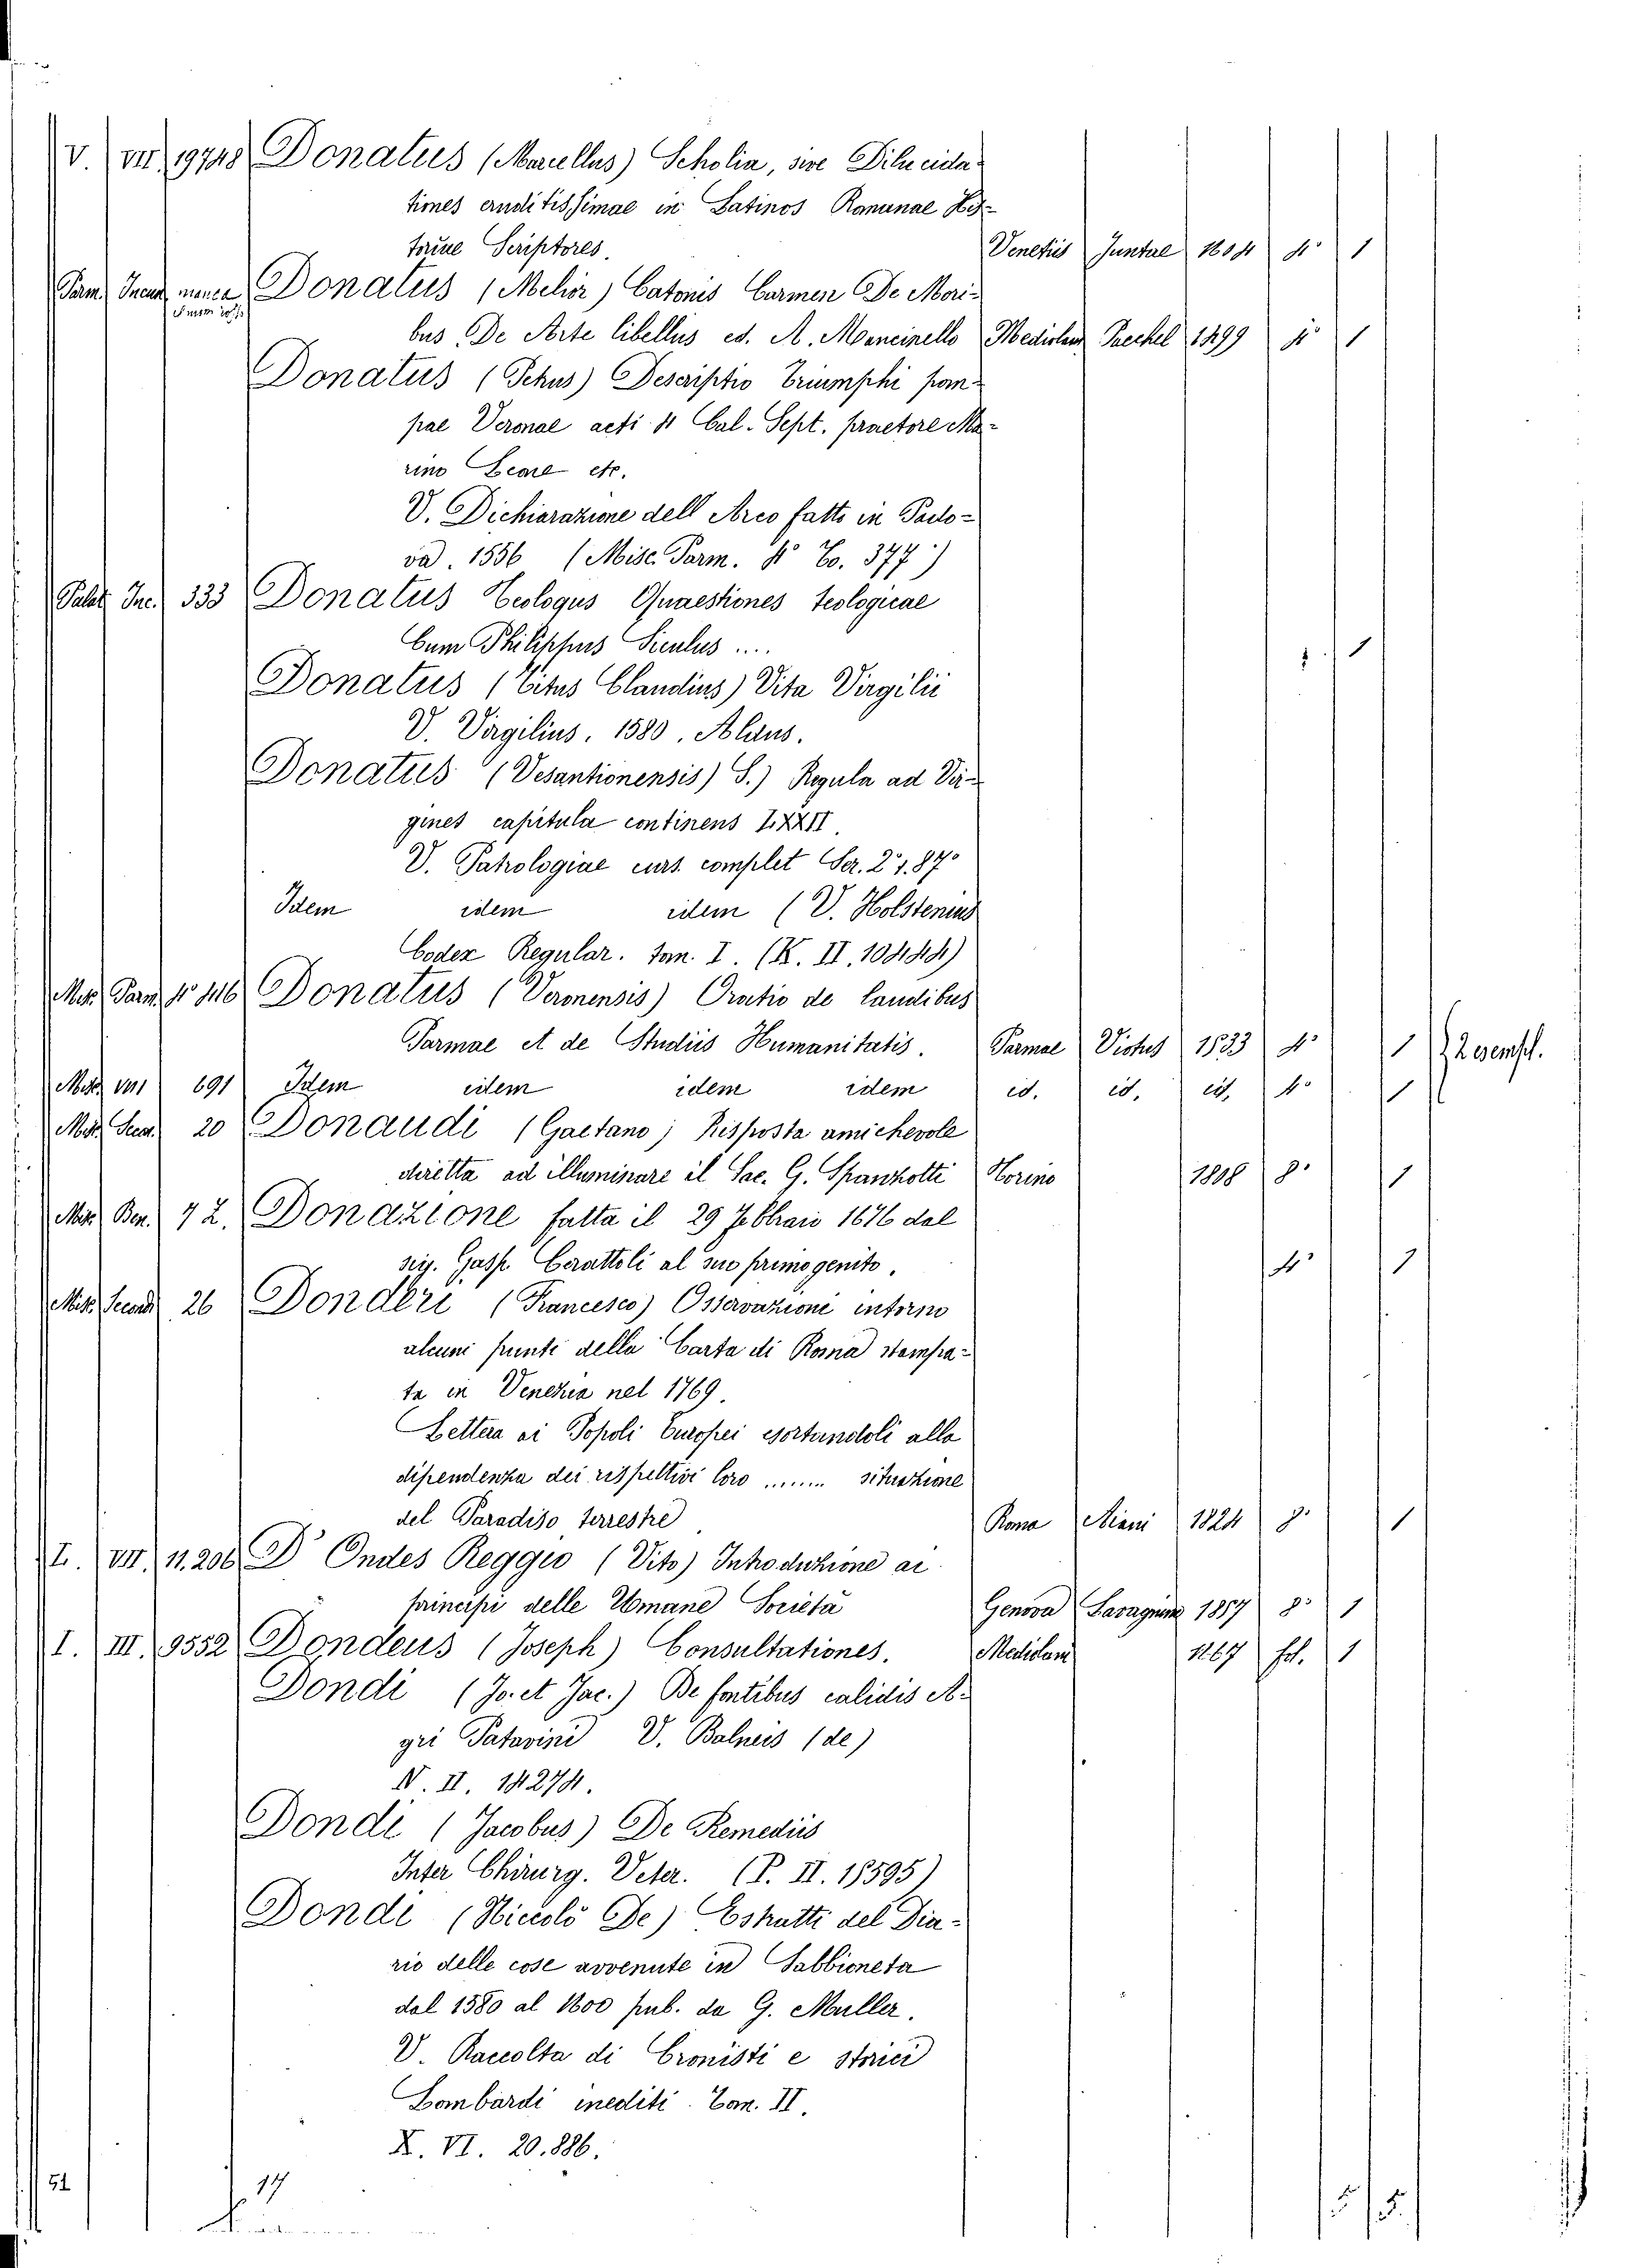 V. VII. 19748 Donatus (Marcellus) Scholia, sive Dilucida-
tiones eruditissimae in Latinos Romanae His-
toriae Scriptores. Venetiis Juntae 1604 4° 1
Parm. Incun. manca Donatus (Melior) Catonis Carmen De Mori-
bus De Arte libellus ed. A. Mancinello Mediolan 1499 4° 1
Donatus (Jehus) Descriptio triumphi pom-
pae Veronae acti 4 Cal. Sept. praetore Ma-
rino etc.
V. Dichiarazione dell Arco fatto in Pado-
va. 1556 (Misc. Parm. 4° To. 377.)
Palat. Inc. 333 Donatus Teologus Quaestiones teologicae
Cum Philippus Siculus .... 1
Donatus (Titus Claudius) Vita Virgilii
V. Virgilius. 1580. Aldus.
Donatus (Vesantionensis) S.) Regula ad Vir-
gines capitula continens LXXII.
V. Patrologiae curs. complet Ser. 2ª t. 87°
Idem idem idem (V. Holstenius
Codex Regular. tom. I. (K. II. 10444)
Misc. Parm. 4° 416 Donatus (Veronensis) Oratio de laudibus
Parmae et de Studiis Humanitatis. Parmae Viotus 1533 4° 1 2 esempl.
Misc. VIII 691 Idem idem idem idem id. id. id. 4° 1
Misc. Secon. 20 Donaudi (Gaetano) Risposta amichevole
diretta ad illuminare il Sac. G. Spanzotti Torino 1818 8° 1
Misc. Ben. 42. Donazione fatta il 29 Febbraio 1676 dal
sig. Gasp. Cerattoli al suo primogenito. 4° 1
Misc. Second. 26 Donderi (Francesco) Osservazioni intorno
alcuni punti della Carta di Roma stampa-
ta in Venezia nel 1769.
Lettera ai Popoli Europei esortandoli alla
dipendenza dei rispettivi loro ....... situazione
del Paradiso terrestre Roma 1824 8° 1
I. VII. 11.206 D' Ondes Reggio (Vito) Introduzione ai
principi delle Umane Società Genova Lavagnino 1857 8° 1
I. III. 9552 Dondeus (Joseph) Consultationes. Mediolani 1767 fol. 1
Dondi (Jo. et Jac.) De fontibus calidis A-
gri Patavini V. Balneis (de)
N. II. 14274.
Dondi (Jacobus) De Remediis
Inter Chirurg. Veter. (P. II. 15595)
Dondi (Niccolò De) Estratti del Dia-
rio delle cose avvenute in Sabbioneta
dal 1580 al 1600 pub. da G. Muller.
V. Raccolta di Cronisti e storici
Lombardi inediti. Tom. II.
X. VI. 20.886.
51 17 5 5